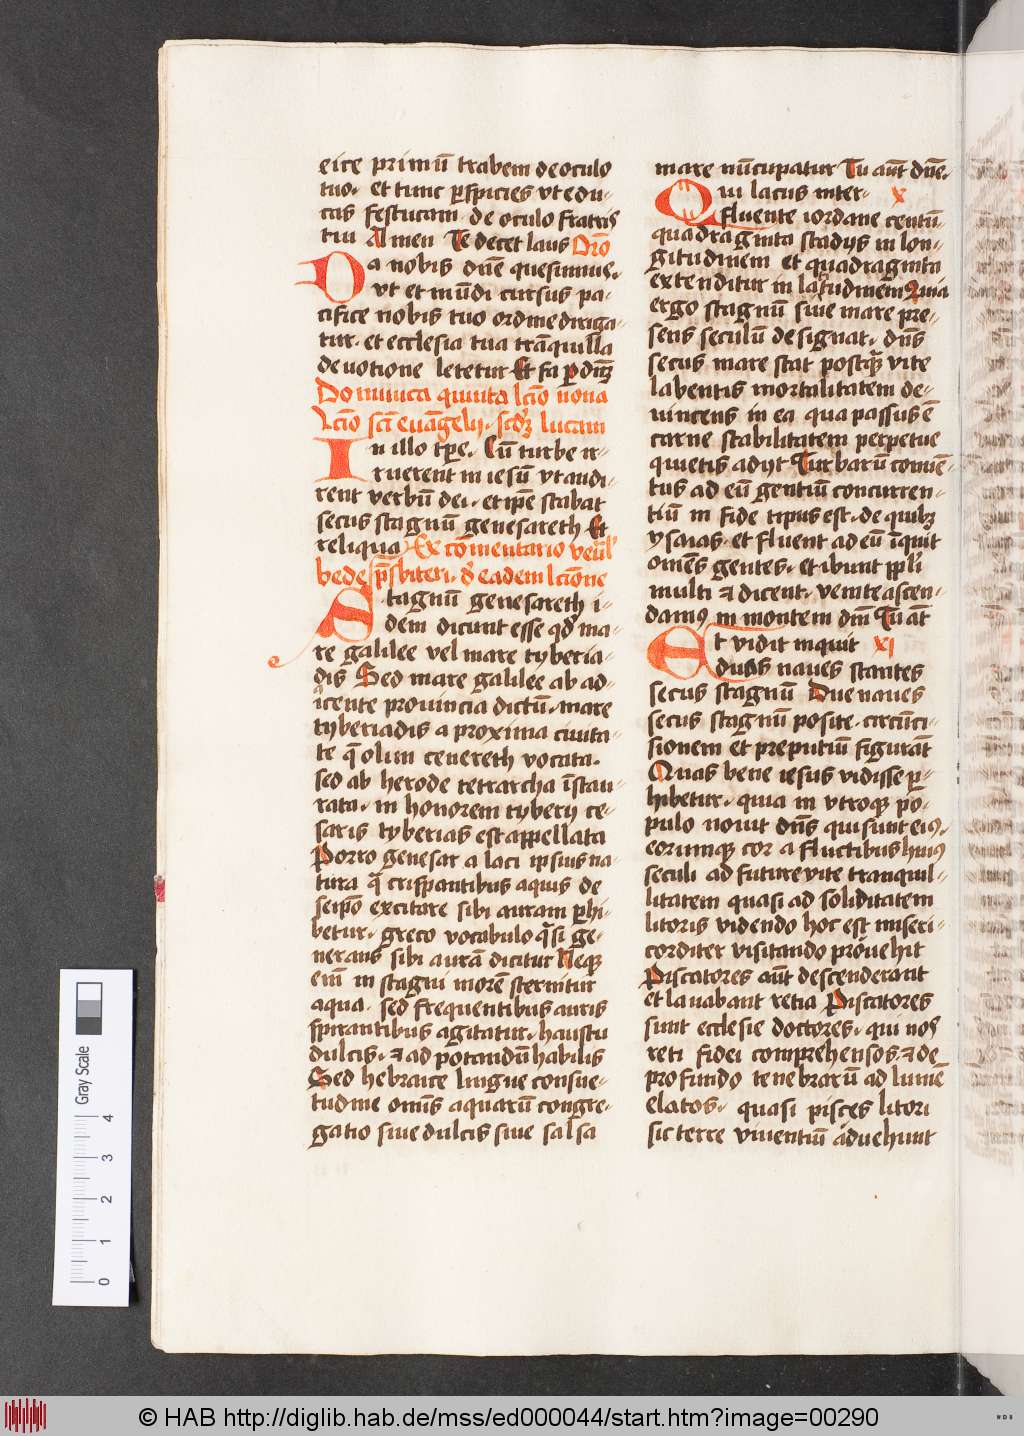 eice primū trabem de oculo
tuo. et tunc ꝑspicies vt edu-
cas festucam. de oculo fratris
tui Amen Te decet laus Oro
Da nobis dn̄e quesumus.
vt et mūdi cursus pa-
cifice nobis tuo ordine diriga-
tur. et ecclesia tua trāquilla
deuotione letetur Et fa ꝑ dn̄ꝫ
Dominica quinta lc̄io nona
Lc̄io sc̄i euāgelij. scd'ꝫ lucam
In illo tꝑe. Cū turbe ir-
ruerent in iesū vt audi-
rent verbū dei. et ip̄e stabat
secus stagnū genesareth Et
reliqua Ex cōmentario ven̄l'
bede p̄sbiteri. d' eadem lc̄ione
Stagnū genesareth i-
dem dicunt esse qd' ma-
re galilee vel mare tyberia-
dis Sed mare galilee ab ad-
icente prouincia dictū. mare
tyberiadis a proxima ciuita-
te q̄ olim cenereth vocata.
sed ab herode tetrarcha īstau-
rata. in honorem tyberij ce-
saris tyberias est appellata
Porro genesar a laci ipsius na-
tura q̄ crispantibus aquis de
seip̄o excitare sibi auram ꝑhi-
betur. greco vocabulo q̄si ge-
nerans sibi aurā dicitur Neqꝫ
em̄ in stagni morē sternitur
aqua. sed frequentibus auris
spirantibus agitatur. haustu
dulcis. et ad potandū habilis
Sed hebraice lingue consue-
tudine om̄is aquarū congre-
gatio siue dulcis siue salsa
mare nūcupatur Tu aūt dn̄e.
Qui lacus inter- x
fluente iordane centū
quadraginta stadijs in lon-
gitudinem et quadraginta
extenditur in latitudinem Quia
ergo stagnū siue mare pre-
sens seculū designat. dn̄s
secus mare stat postqꝫ vite
labentis mortalitatem de-
uincens in ea qua passus ē
carne stabilitatem perpetue
quietis adijt Turbarū conuē-
tus ad eū gentiū concurren-
tiū in fide tipus est. de quibꝫ
ysaias. et fluent ad eū īquit
om̄es gentes. et ibunt ppl'i
multi et dicent. venite ascen-
damꝰ in montem dn̄i Tu aūt
Et vidit inquit xi
duas naues stantes
secus stagnū Due naues
secus stagnū posite. circūci-
sionem et preputiū figurāt
Quas bene iesus vidisse ꝑ-
hibetur. quia in vtroqꝫ po-
pulo nouit dn̄s qui sunt eiꝰ.
eorumqꝫ cor a fluctibus huiꝰ
seculi ad future vite tranquil-
litatem quasi ad soliditatem
litoris videndo hoc est miseri-
corditer visitando prouehit
Piscatores aūt descenderant
et lauabant retia Piscatores
sunt ecclesie doctores. qui nos
reti fidei comprehensos. et de
profundo tenebrarū ad lumē
elatos. quasi pisces litori
sic terre viuentiū aduehunt
Gray Scale
0 1 2 3 4
© HAB http://diglib.hab.de/mss/ed000044/start.htm?image=00290